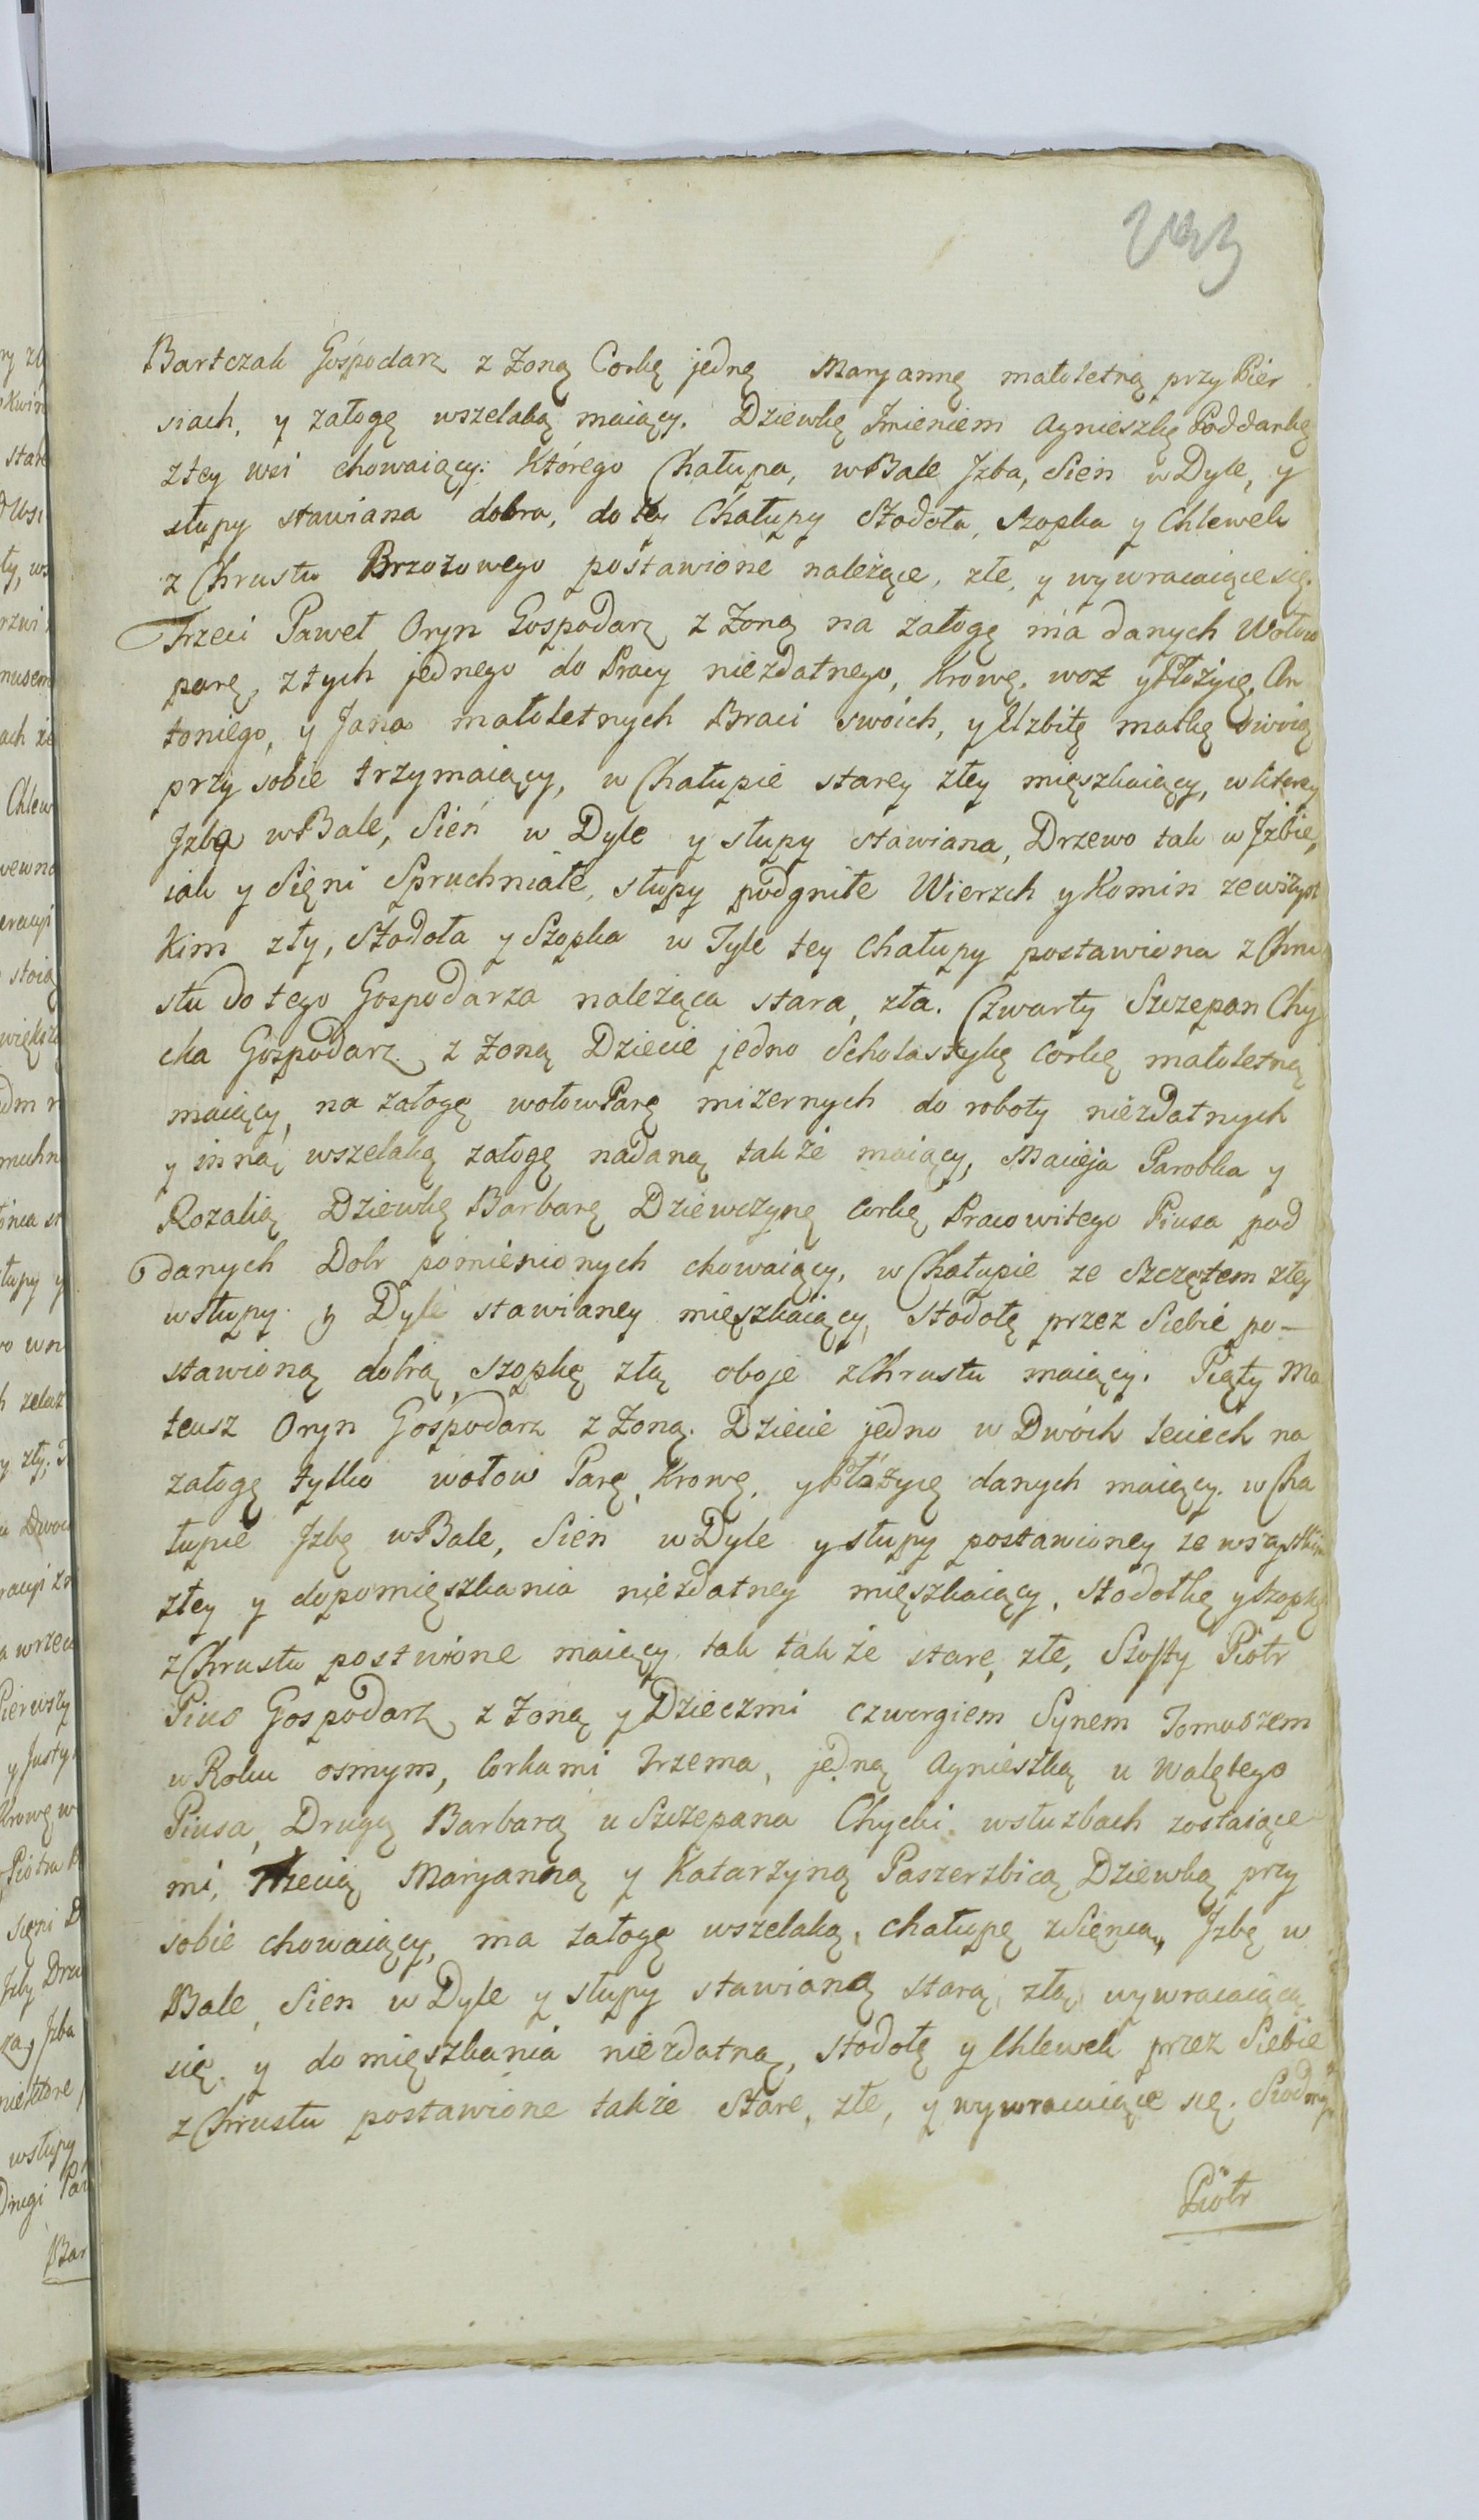 Bartczak Gospodarz z Zoną Corkę jednę Maryannę małoletnią przy Pier
siach, y załogę wszelaką maiący. Dziewkę Imieniem Agnieszkę Poddankę
z tey wsi chowaiący: którego Chałupa, w Bale Jzba, Sień w Dyle, y
słupy stawiana dobra, do tey Chałupy Stodoła, Szopka y Chlewek
z Chrustu Brzozowego postawione należące, złe, y wywracaiące się.
Trzeci Paweł Oryn Gospodarz z Zoną na załogę ma danych Wołow
parę, z tych jednego do Pracy niezdatnego, Krowę, woz y Płużycę, An
toniego, y Jana małoletnych Braci swoich, y Elzbitę matkę swoią
przy sobie trzymaiący, w Chałupie starey złey mięszkaiący, w ktorey
Jzba w Bale, Sień w Dyle y słupy stawiana, Drzewo tak w Jzbie,
iak y Sięni Spruchniałe, słupy podgniłe Wierzch y Komin ze wszyst
kim zły, Stodoła y Szopka w Tyle tey Chałupy postawiona z Chru
stu do tego Gospodarza należąca stara, zła. Czwarty Szczepan Chy
cka Gospodarz z Zoną Dziecie jedno Scholastykę Corkę małoletnią
maiący, na załogę wołow Parę mizernych do roboty niezdatnych
y inną wszelaką załogę nadaną także maiący, Macieja Parobka y
Rozalią Dziewkę Barbarę Dziewczynę Corkę Pracowitego Piusa pod
danych Dobr pomienionych chowaiący, w Chałupie ze Szczętem złey
w słupy y Dyle stawianey mięszkaiący, Stodołę przez Siebie po-
stawioną dobrą, szopkę złą oboje z Chrustu maiący. Piąty Ma
teusz Oryn Gospodarz z Zoną. Dziecie jedno w Dwóch leciech na
załogę tylko wołow Parę, Krowę, y Płużycę danych maiący. w Cha
łupie Jzbę w Bale, Sień w Dyle y słupy postawioney ze wszystkim
złey y do pomięszkania niezdatney mięszkaiący, Stodołkę y Szopkę
z Chrustu postwione maiący tak także stare, złe, Szosty Piotr
Pius Gospodarz z Zoną y Dzieczmi czworgiem Synem Tomaszem
w Roku osmym, Corkami Trzema, jedną Agnieszką u Walętego
Piusa, Drugą Barbarą u Szczepana Chycki w służbach zostaiące
mi, Trzecią Maryanną y Katarzyną Paszerzbicą Dziewką przy
sobie chowaiący, ma załogę wszelaką, chałupę z Sięnią, Jzbę w
Bale, Sien w Dyle y słupy stawianą starą, złą, wywracaiącą
się y do mięszkania niezdatną, stodołę y Chlewek przez Siebie
z Chrustu postawione także Stare, złe, y wywracaiące się. Siodmy
Piotr